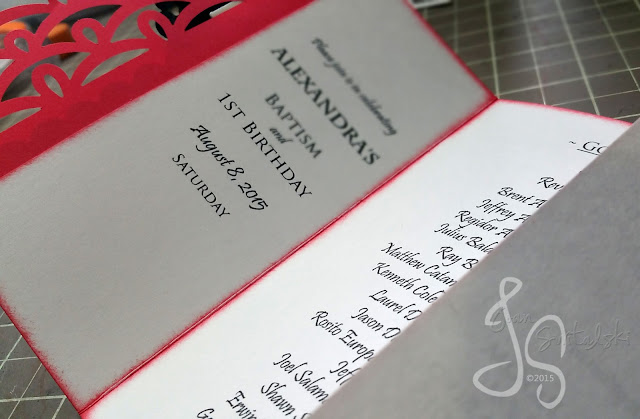 Please join us in celebrating
ALEXANDRA'S
BAPTISM
and
1ST BIRTHDAY
August 8, 2015
SATURDAY
~ Go
Rev
Brent A
Jeffrey A
Regidor A
Julius Bal
Ray B
Matthew Catan
Kenneth Cole
Laurel D
Jason D
Rosito Europ
Jeff
Joel Salam
Shawn S
Erwin
G
JS
Jan
©2015